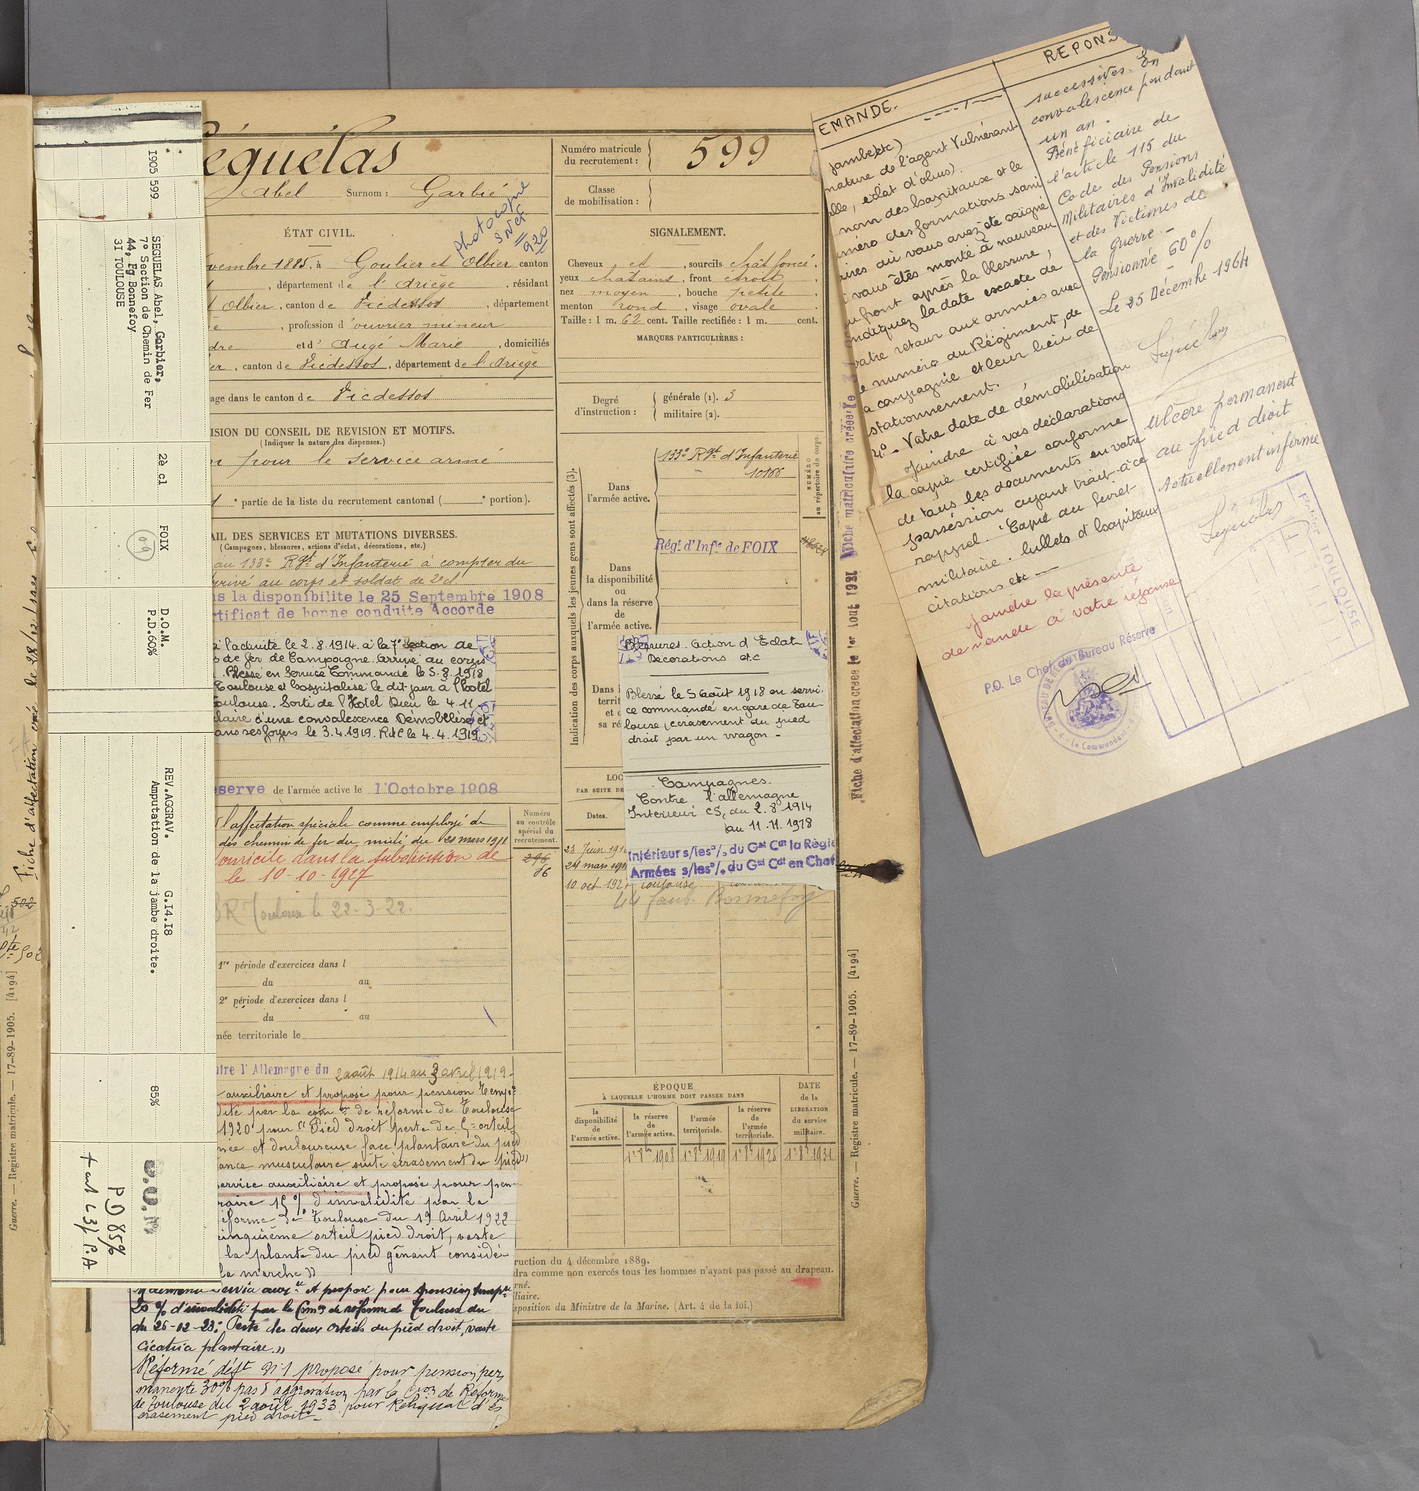 Séguélas
Abel Surnom : Garbié
photocopie
920
Numéro matricule
du recrutement :
599
Classe
de mobilisation :
ÉTAT CIVIL.
vembre 1885, à Goulier et Olbier canton
, département de l'Ariège , résidant
t Olbier , canton de Vicdessos , département
, profession d'ouvrier mineur
dre et d' Augé Marie , domiciliés
er , canton de Vicdessos , département de l'Ariège
age dans le canton de Vicdessos
ISION DU CONSEIL DE REVISION ET MOTIFS.
(Indiquer la nature des dispenses.)
n pour le service armé
1 e partie de la liste du recrutement cantonal ( e portion).
AIL DES SERVICES ET MUTATIONS DIVERSES.
(Campagnes, blessures, actions d'éclat, décorations, etc.)
au 133e Rgt d'Infanterie à compter du
rrivé au corps et soldat de 2e cl
ns la disponibilite le 25 Septembre 1908
rtificat de bonne conduite Accorde
à l'activité le 2.8.1914. à la 7e Section de
s de fer de Campagne. Arrivé au corps
. Blessé en Service Commandé le 5.8.1918
Toulouse et hospitalisé le dit jour à l'hotel
oulouse. Sorti de l'Hotel Dieu le 4.11
laire d'une convalescence Démobilisé et
ans ses foyers le 3.4.1919. Rdt le 4.4.1919
eserve de l'armée active le 1'Octobre 1908
l'affectation spéciale comme employé de
des chemin de fer du midi du 20 mars 1911
omicile dans la subdivision de
le 10-10-1927
Toulouse le 22-3-22.
Numéro
au contrôle
spécial du
recrutement.
1re période d'exercices dans l
du au
2e période d'exercices dans l
du au
mée territoriale le
ntre l'Allemagne du 2 août 1914 au 3 avril 1919.
auxiliaire et proposé pour pension temp
dité par la com on de réforme de Toulouse
1920 pour " Pied droit perte de 5e orteil
née et douloureuse face plantaire du pied
ance musculaire suite écrasement du pied "
service auxiliaire et proposé pour pen
raire 15% d'invalidité par la
éforme de Toulouse du 19 Avril 1922
inquième orteil pied droit, vaste
la plante du pied gênant considé
la marche "
et proposé pour pension temp
20 % d'invalidité par la Com de réforme de Toulouse du
du 26-02-23: Perte des deux orteils du pied droit, vaste
cicatrice plantaire. "
Réformé déft N°1 proposé pour pension per
manente 30% pas d'aggravation par la Con de Réforme
de Toulouse du 2 août 1933 pour Reliquat d'é
crasement pied droit -
SIGNALEMENT.
Cheveux et , sourcils chat foncé.
yeux chatains , front étroit
nez moyen , bouche petite
menton rond , visage ovale
Taille : 1 m. 62 cent. Taille rectifiée : 1 m. cent.
MARQUES PARTICULIÈRES :
Degré
d'instruction :
générale (1). 3
militaire (2).
Indication des corps auxquels les jeunes gens sont affectés (3).
Dans
l'armée active.
133e Rgt d'Infanterie
10166
NUMÉRO
au répertoire du corps.
Régt d'Infie de FOIX
Dans
la disponibilité
ou
dans la réserve
de
l'armée active.
Blessures. Action d'Eclat
Décorations etc
Blessé le 5 août 1918 en servi-
ce commandé en gare de Tou-
louse, écrasement du pied
droit par un wagon -
Campagnes.
Contre l'allemagne
Intérieur CS, du 2.8.1914
au 11.11.1918
Intérieur s/les o/. du Gal Cdt la Régie
Armées s/les o/. du Gal Cdt en Chef
Dates.
10 oct 192 Toulouse
44 faub. Bonnefoy
ÉPOQUE
À LAQUELLE L'HOMME DOIT PASSER DANS
la
disponibilité
de
l'armée active.
la réserve
de
l'armée active.
l'armée
territoriale.
la réserve
de
l'armée
territoriale.
DATE
de la
LIBÉRATION
du service
militaire.
1r 8bre 1908
ruction du 4 décembre 1889.
dra comme non exercés tous les hommes n'ayant pas passé au drapeau.
sposition du Ministre de la Marine. (Art. 4 de la loi.)
Guerre. — Registre matricule. — 17-89-1905. [4194]
Guerre. — Registre matricule. — 17-89-1905. [4194]
1905 599
SEGUELAS Abel, Gorbier,
7° Section de Chemin de Fer
44, Fg Bonnefoy
3I TOULOUSE
2è cl
FOIX
09
D.O.M.
P.D.60%
REV.AGGRAV. G.I4.I8
Amputation de la jambe droite.
85%
PD 85%
EMANDE.
jambe, etc)
nature de l'agent Vulnérant
lle, éclat d'obus).
nom des hopitaux et le
méro des formations sani
aires où vous avez été soigné
i vous êtes monté à nouveau
au front après la blessure,
indiquez la date exacte de
votre retour aux armées avec
le numéro du Régiment, de
la compagnie et leur lieu de
stationnement.
4° - Votre date de démobilisation
Joindre à vos déclarations
la copie certifiée conforme
de tous les documents en votre
possession ayant trait à ce
rappel. Copie du livret
militaire. bullets d'hopitaux
citations etc —
Joindre la présente
demande à votre réponse
P.O. Le Chef du Bureau Réserve
REPONS
successives. En
convalescence pendant
un an.
Bénéficiaire de
l'article 115 du
Code des Pensions
Militaires d'Invalidité
et des Victimes de
la Guerre -
Pensionné 60%
Le 25 Décembre 1964
Ulcère permanent
au pied droit
Actuellement infirme
TOULOUSE